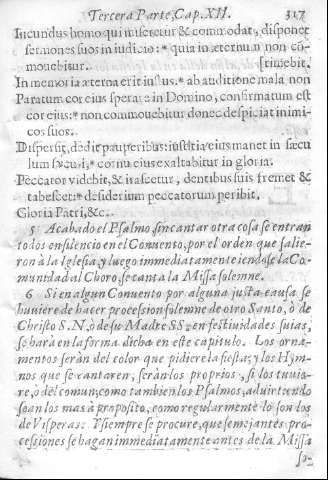 Tercera Parte, Cap. XII. 317
Iucundus homo qui miseretur & commodat, disponet
sermones suos in iudicio: * quia in æternum non co-
mouebitur. [timebit.
In memoria æterna erit iustus: * ab auditione mala non
Paratum cor eius sperare in Domino, confirmatum est
cor eius: * non commouebitur donec despiciat inimi-
cos suos.
Dispersit, dedit pauperibus: iustitia eius manet in sæcu
lum sæculi, * cornu eius exaltabitur in gloria.
Peccator videbit, & irascetur, dentibus suis fremet &
tabescet: * desiderium peccatorum peribit.
Gloria Patri, &c.
5 Acabado el Psalmo, sin cantar otra cosa se entran
todos en silencio en el Conuento, por el orden que salie-
ron à la Iglesia, y luego immediatamente iendose la Co-
munidad al Choro, se canta la Missa solemne.
6 Si en algun Conuento por alguna justa causa se
huuiere de hacer procession solemne de otro Santo, ò de
Christo S. N. ò de su Madre SS. en festiuidades suias,
se harà en la forma dicha en este capitulo. Los orna-
mentos seràn del color que pidiere la fiesta; y los Hym-
nos que se cantaren, seràn los proprios, si los tuuie-
re, ò del comun; como tambien los Psalmos, aduirtiendo
sean los mas à proposito, como regularmente lo son los
de Visperas: Y siempre se procure, que semejantes pro-
cessiones se hagan immediatamente antes de la Missa
so-